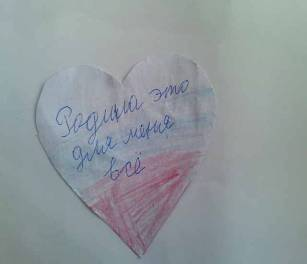 Родина это
для меня
всё